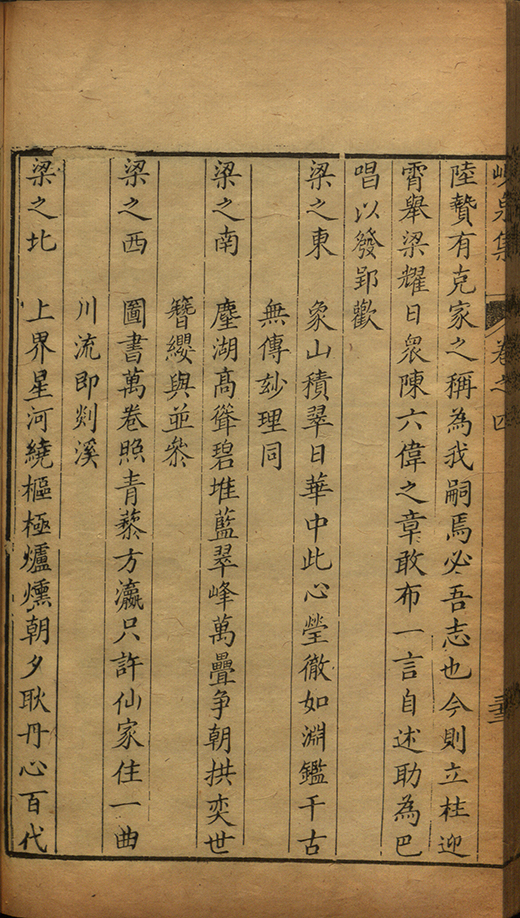 峴泉集 卷之四
陸贄有克家之稱為我嗣焉必吾志也今則立柱迎
霄舉梁耀日衆陳六偉之章敢布一言自述助為巴
唱以發郢歡
梁之東 象山積翠日華中此心瑩徹如淵鑑千古
無傳玅理同
梁之南 塵湖髙聳碧堆藍翠峰萬疊争朝拱奕世
簪纓與並叅
梁之西 圖書萬卷照青藜方瀛只許仙家住一曲
川流即剡溪
梁之北 上界星河繞樞極爐燻朝夕耿丹心百代